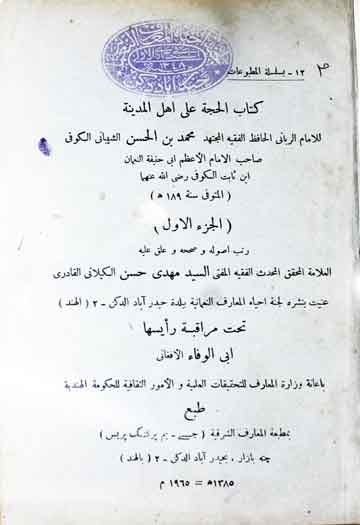 ١٢ - سلسلة المطبوعات
كتاب الحجة على اهل المدينة
للامام الربانى الحافظ الفقيه المجتهد محمد بن الحسن الشيبانى الكوفى
صاحب الامام الأعظم ابى حنيفة النعمان
ابن ثابت الكوفى رضى الله عنهما
( المتوفى سنة ١٨٩ ھ )
( الجزء الاول )
رتب اصوله و صححه و علق عليه
العلامة المحقق المحدث الفقيه المفتى السيد مهدى حسن الكيلانى القادرى
عنيت بنشره لجنة احياء المعارف النعمانية ببلدة حيدر آباد الدكن - ٢ ( الهند )
تحت مراقبة رأيسها
ابى الوفاء الافغانى
باعانة وزارة المعارف للتحقيقات العلمية و الأمور الثقافية للحكومة الهندية
طبع
بمطبعة المعارف الشرقية ( جسے - يم پرنٹنگ پريس )
چته بازار ، بحيدر آباد الدكن - ٢ ( بالهند )
١٣٨٥ھ = ١٩٦٥ م